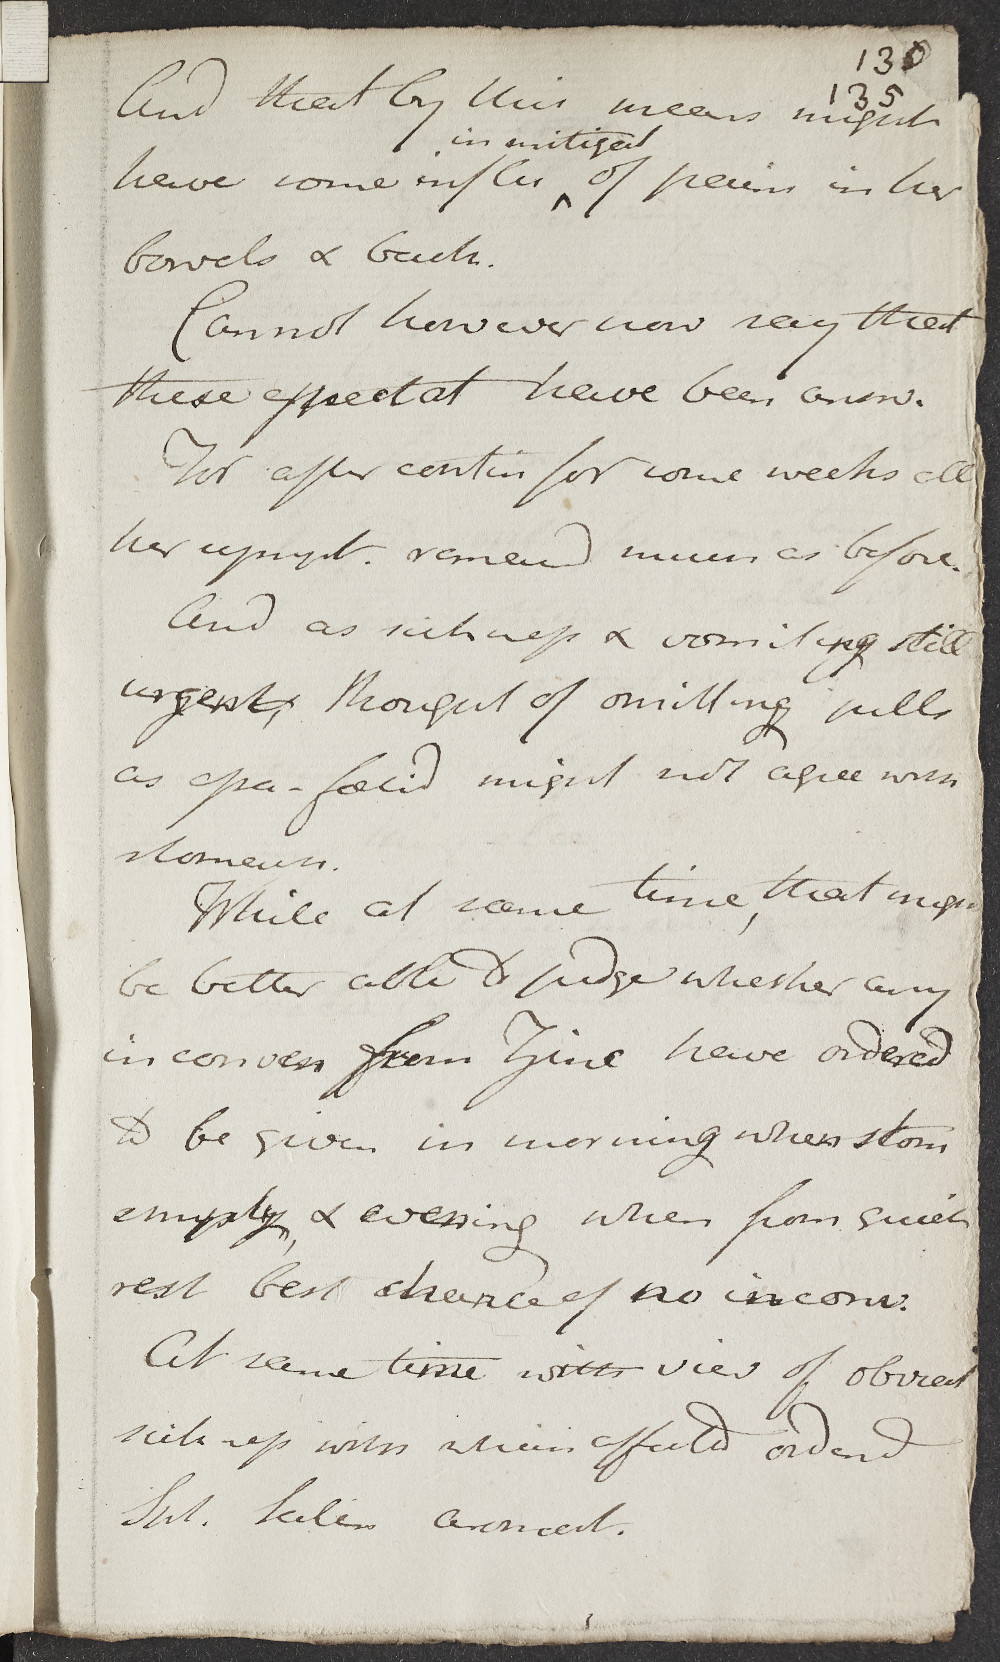 130
135
And that by this means might
in mitigat
have some influ ^ of pains in her
bowels & back.
Cannot however now say that
these expectat have been answ.
For after contin for some weeks all
her sympt. remaind much as before.
And as sickness & vomiting still
urgent, thought of omitting pills
as assa-foetid might not agree with
stomach.
While at same time, that might
be better able to judge whether any
inconven from Zinc have ordered
to be given in morning when stom
empty, & evening when from quiet
rest best chance of no inconv.
At same time with view of obviat
sickness with which affectd orderd
Spt. Salin aromat.